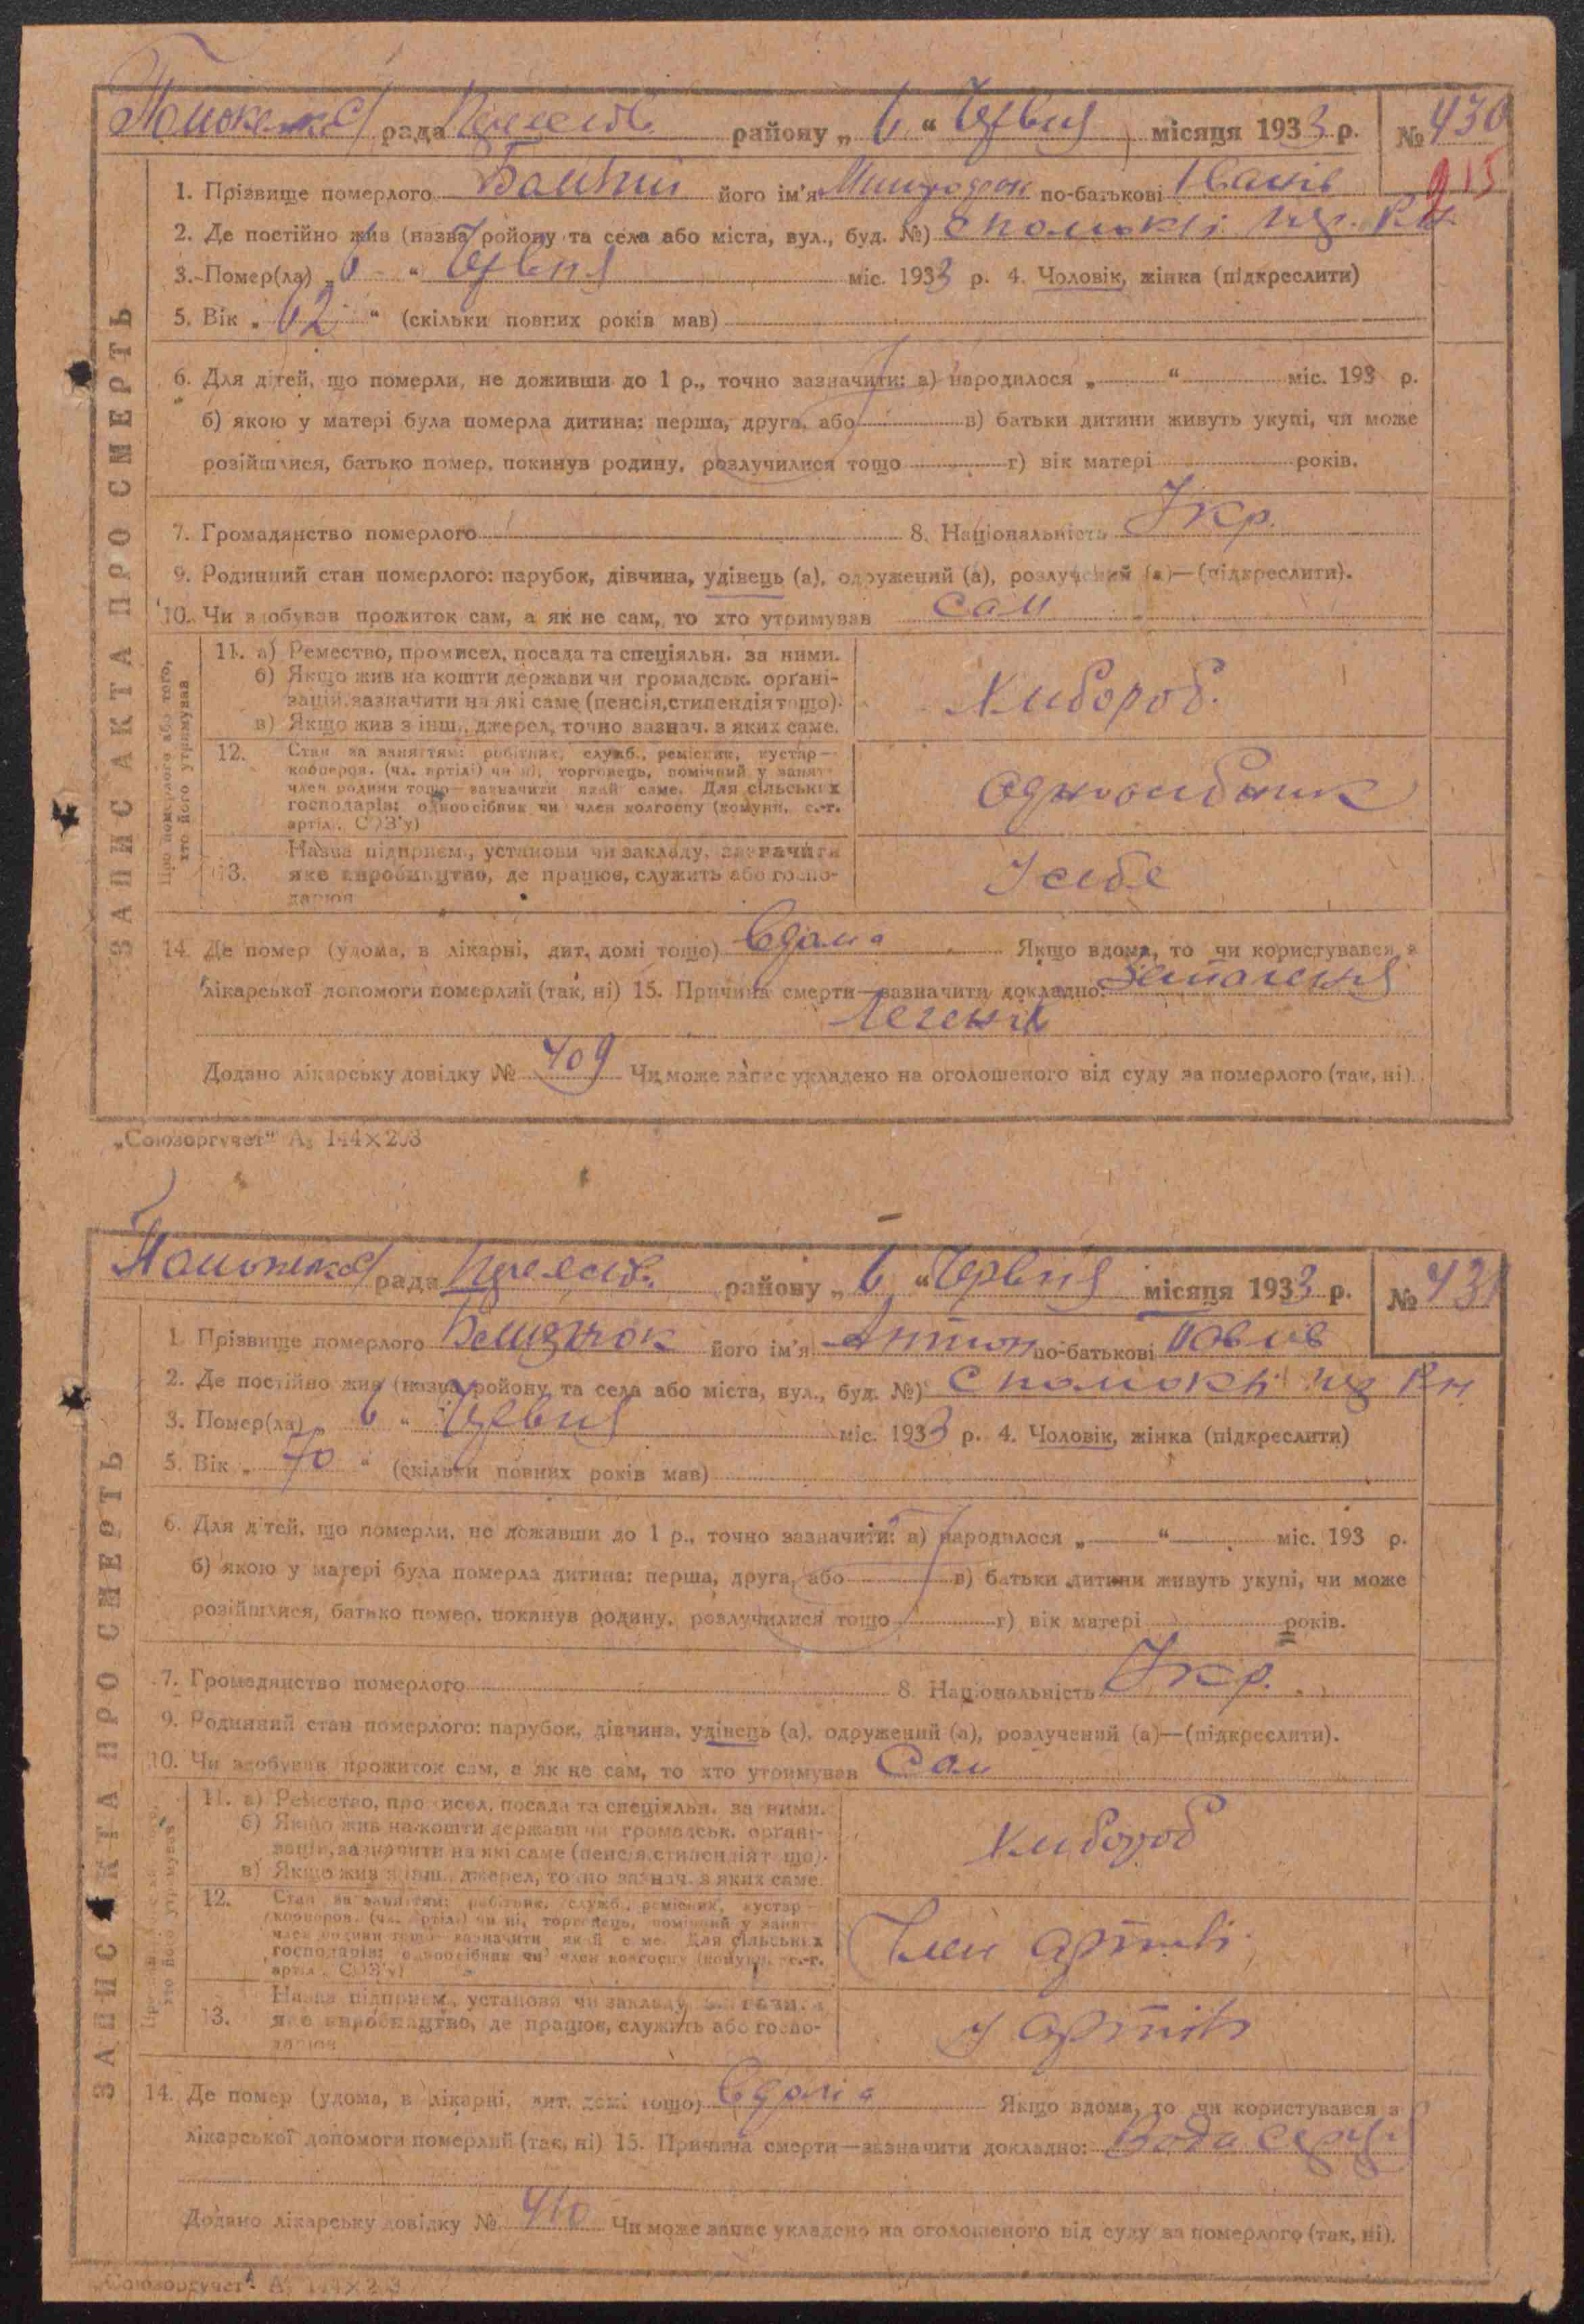 рада Переяслів району „ 6 “ Червня місяця 1933 р. № 430
915
1. Прізвище померлого його ім'я по-батькові Іванів
2. Де постійно жив (назва ройону та села або міста, вул., буд. №)
3. Помер(ла) „ 6 “ Червня міс. 1933 р. 4. Чоловік, жінка (підкреслити)
5. Вік „ 62 “ (скільки повних років мав)
ЗАПИС АКТА ПРО СМЕРТЬ
6. Для дітей, що померли, не доживши до 1 р., точно зазначити: а) народилося „ “ міс. 193 р.
б) якою у матері була померла дитина: перша, друга, або в) батьки дитини живуть укупі, чи може
розійшлися, батько помер, покинув родину, розлучилися тощо г) вік матері років.
7. Громадянство померлого 8. Національність Укр.
9. Родинний стан померлого: парубок, дівчина, удівець (а), одружений (а), розлучений (а)—(підкреслити).
10. Чи здобував прожиток сам, а як не сам, то хто утримував сам
Про померлого або того, хто його утримував
11. а) Ремество, промисел, посада та спеціяльн. за ними.
б) Якщо жив на кошти держави чи громадськ. органі-
зацій, зазначити на які саме (пенсія, стипендія тощо).
в) Якщо жив з інш., джерел, точно зазнач. з яких саме.
Хлібороб.
12. Стан за заняттям: робітник, служб., ремісник, кустар—
кооперов. (чл. артілі) чи ні, торговець, помічний у занят—
член родини тощо—зазначити який саме. Для сільських
господарів: одноосібник чи член колгоспу (комуни, с.-г.
артіл., СОЗ'у)
Одноосібник
13. Назва підприєм., установи чи закладу, зазначити
яке виробництво, де працює, служить або госпо-
дарює
У себе
14. Де помер (удома, в лікарні, дит. домі тощо) Вдома Якщо вдома, то чи користувався з
лікарської допомоги померлий (так, ні) 15. Причина смерти—зазначити докладно: Запалення
легенів
Додано лікарську довідку № 409 Чи може запис укладено на оголошеного від суду за померлого (так, ні).
„Союзоргучет“ А5 144×203
рада Переяслів. району „ 6 “ Червня місяця 1933 р. № 431
1. Прізвище померлого його ім'я Антон по-батькові Павлів
2. Де постійно жив (назва ройону та села або міста, вул., буд. №)
3. Помер(ла) „ 6 “ Червня міс. 1933 р. 4. Чоловік, жінка (підкреслити)
5. Вік „ 70 “ (скільки повних років мав)
ЗАПИС АКТА ПРО СМЕРТЬ
6. Для дітей, що померли, не доживши до 1 р., точно зазначити: а) народилося „ “ міс. 193 р.
б) якою у матері була померла дитина: перша, друга, або в) батьки дитини живуть укупі, чи може
розійшлися, батько помер, покинув родину, розлучилися тощо г) вік матері років.
7. Громадянство померлого 8. Національність Укр.
9. Родинний стан померлого: парубок, дівчина, удівець (а), одружений (а), розлучений (а)—(підкреслити).
10. Чи здобував прожиток сам, а як не сам, то хто утримував Сам
хто його утримував
11. а) Ремество, промисел, посада та спеціяльн. за ними.
б) Якщо жив на кошти держави чи громадськ. органі-
зацій, зазначити на які саме (пенсія, стипендія тощо).
в) Якщо жив з інш., джерел, точно зазнач. з яких саме.
Хлібороб
12. Стан за заняттям: робітник, служб., ремісник, кустар—
кооперов. (чл. артілі) чи ні, торговець, помічний у занят—
член родини тощо—зазначити який саме. Для сільських
господарів: одноосібник чи член колгоспу (комуни, с.-г.
артіл., СОЗ'у)
Член артілі
13. Назва підприєм., установи чи закладу, зазначити
яке виробництво, де працює, служить або госпо-
дарює
У артілі
14. Де помер (удома, в лікарні, дит. домі тощо) Вдома Якщо вдома, то чи користувався з
лікарської допомоги померлий (так, ні) 15. Причина смерти—зазначити докладно: Вада серця
Додано лікарську довідку № 410 Чи може запис укладено на оголошеного від суду за померлого (так, ні).
„Союзоргучет“ А5 144×203